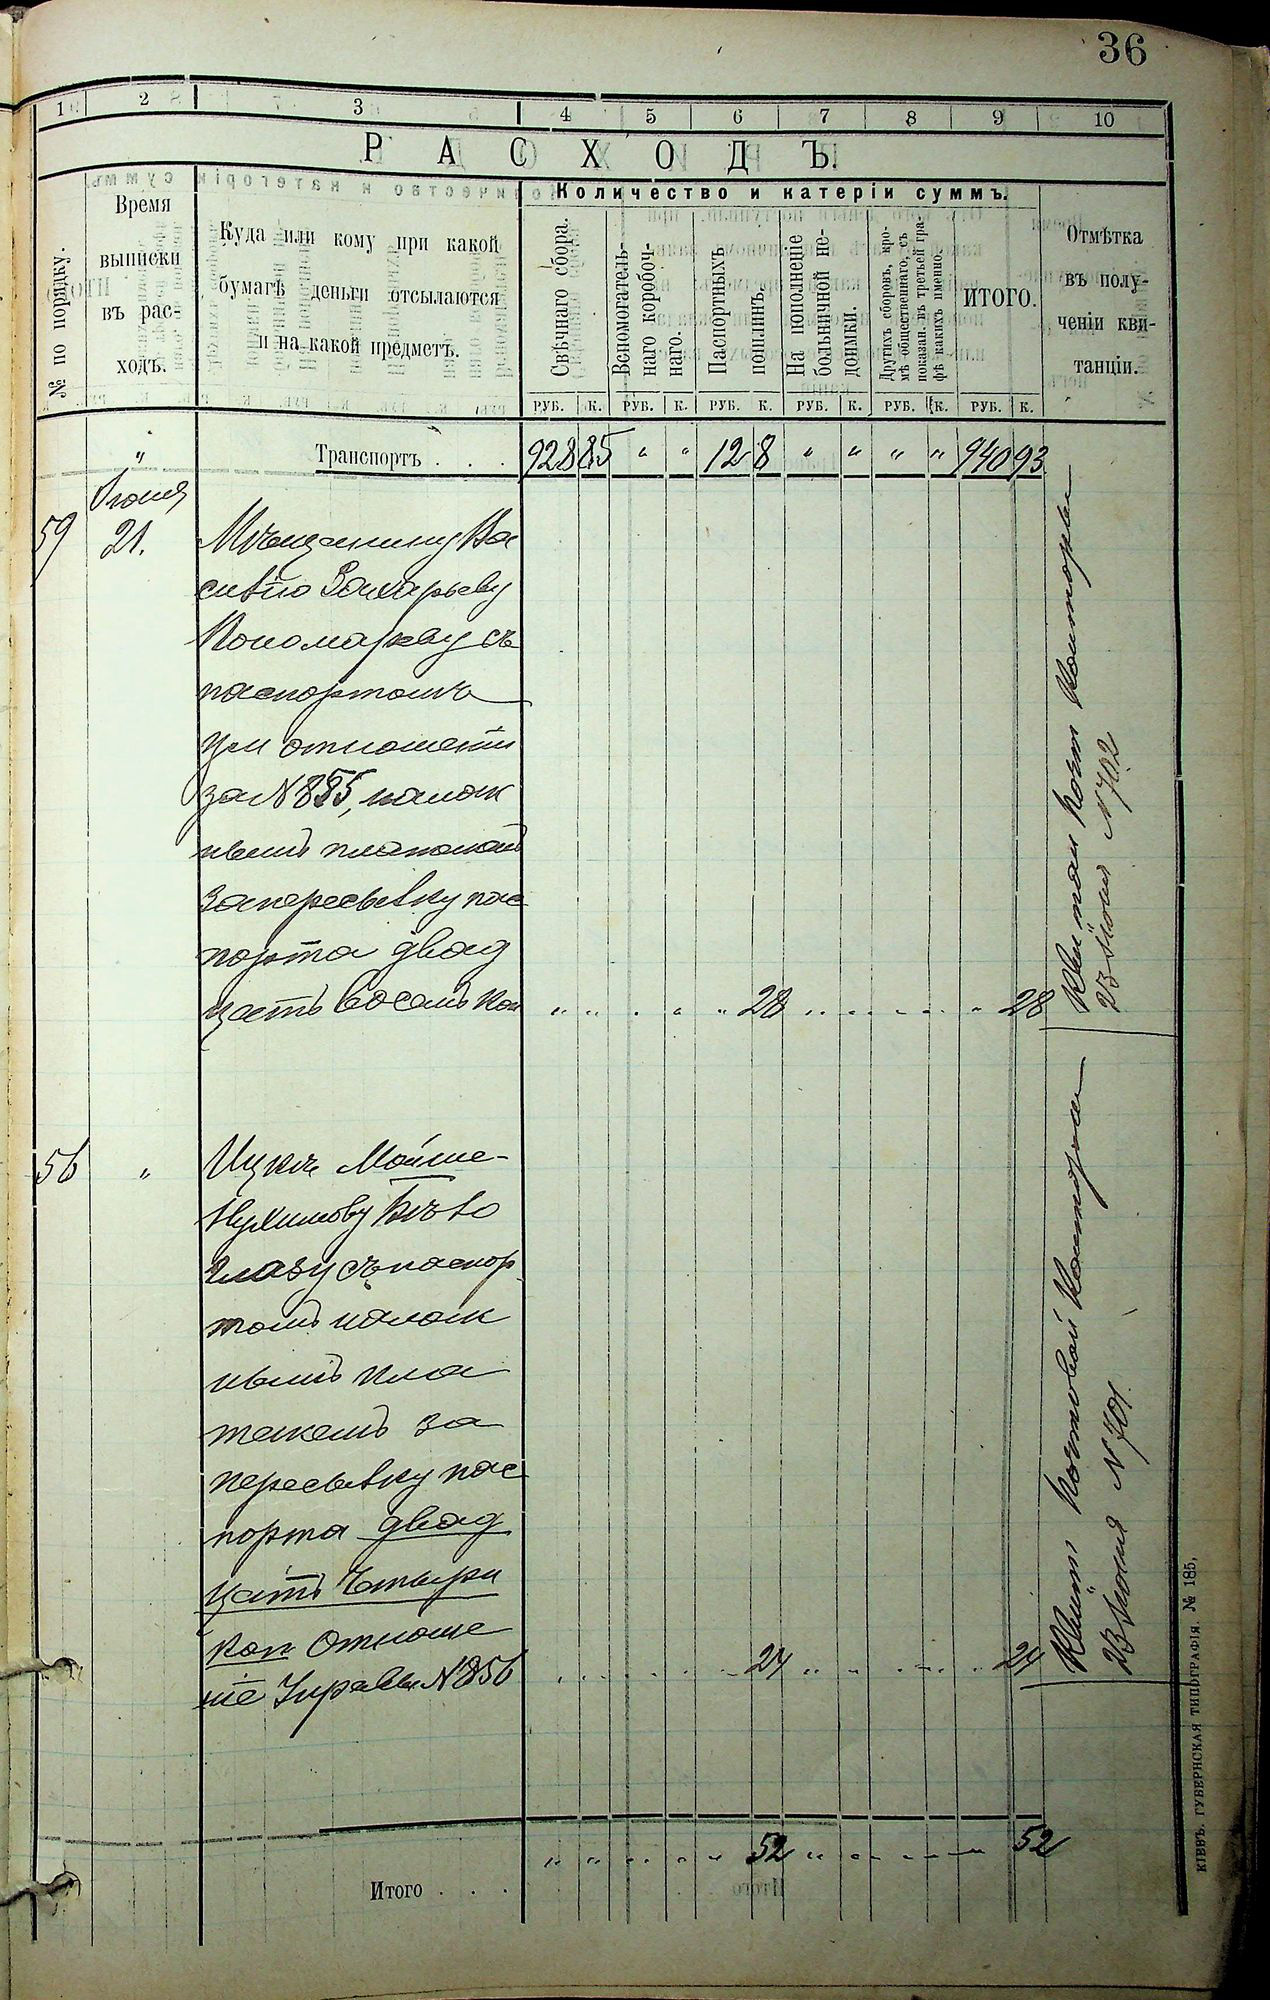 36
1 2 3 4 5 6 7 8 9 10
РАСХОДЪ.
№ по порядку.
Время
выписки
въ рас-
ходъ.
Куда или кому при какой
бумагѣ деньги отсылаются
и на какой предметъ.
Количество и катеріи суммъ.
Свѣчнаго сбора.
Вспомогатель-
наго коробоч-
наго.
Паспортныхъ
пошлинъ.
На пополненіе
больничной не-
доимки.
Другихъ сборовъ, кро-
мѣ общественнаго, съ
показан. въ третьей гра-
фѣ какихъ именно.
ИТОГО.
Отмѣтка
въ полу-
ченіи кви-
танціи.
РУБ. К. РУБ. К. РУБ. К. РУБ. К. РУБ. К. РУБ. К.
" Транспортъ . . . 928 85 " " 12 8 " " " " 940 93
Іюня
59 21. Мѣщанину Ва
силію Захарьеву
Пономареву съ
паспортомъ
при отношеніи
за № 855, налож
нымъ платежомъ
за пересылку пас
порта двад
цать восемь коп " " " " " 28 " " " " " 28
Квитан Почт Конторы
23 Іюня № 702
56 " Ицкѣ Мойше-
Нухимову Бѣло
глазу съ паспор
томъ налож
нымъ пла
тежемъ за
пересылку пас
порта двад
цать четыри
коп Отноше
ніе Управы № 856 " " " " " 24 " " " " " 24
Квит Почтовой Конторы
23 Іюня № 701
Итого . . . " " " " " 52 " " " " " 52
КІЕВЪ. ГУБЕРНСКАЯ ТИПОГРАФІЯ. № 185,